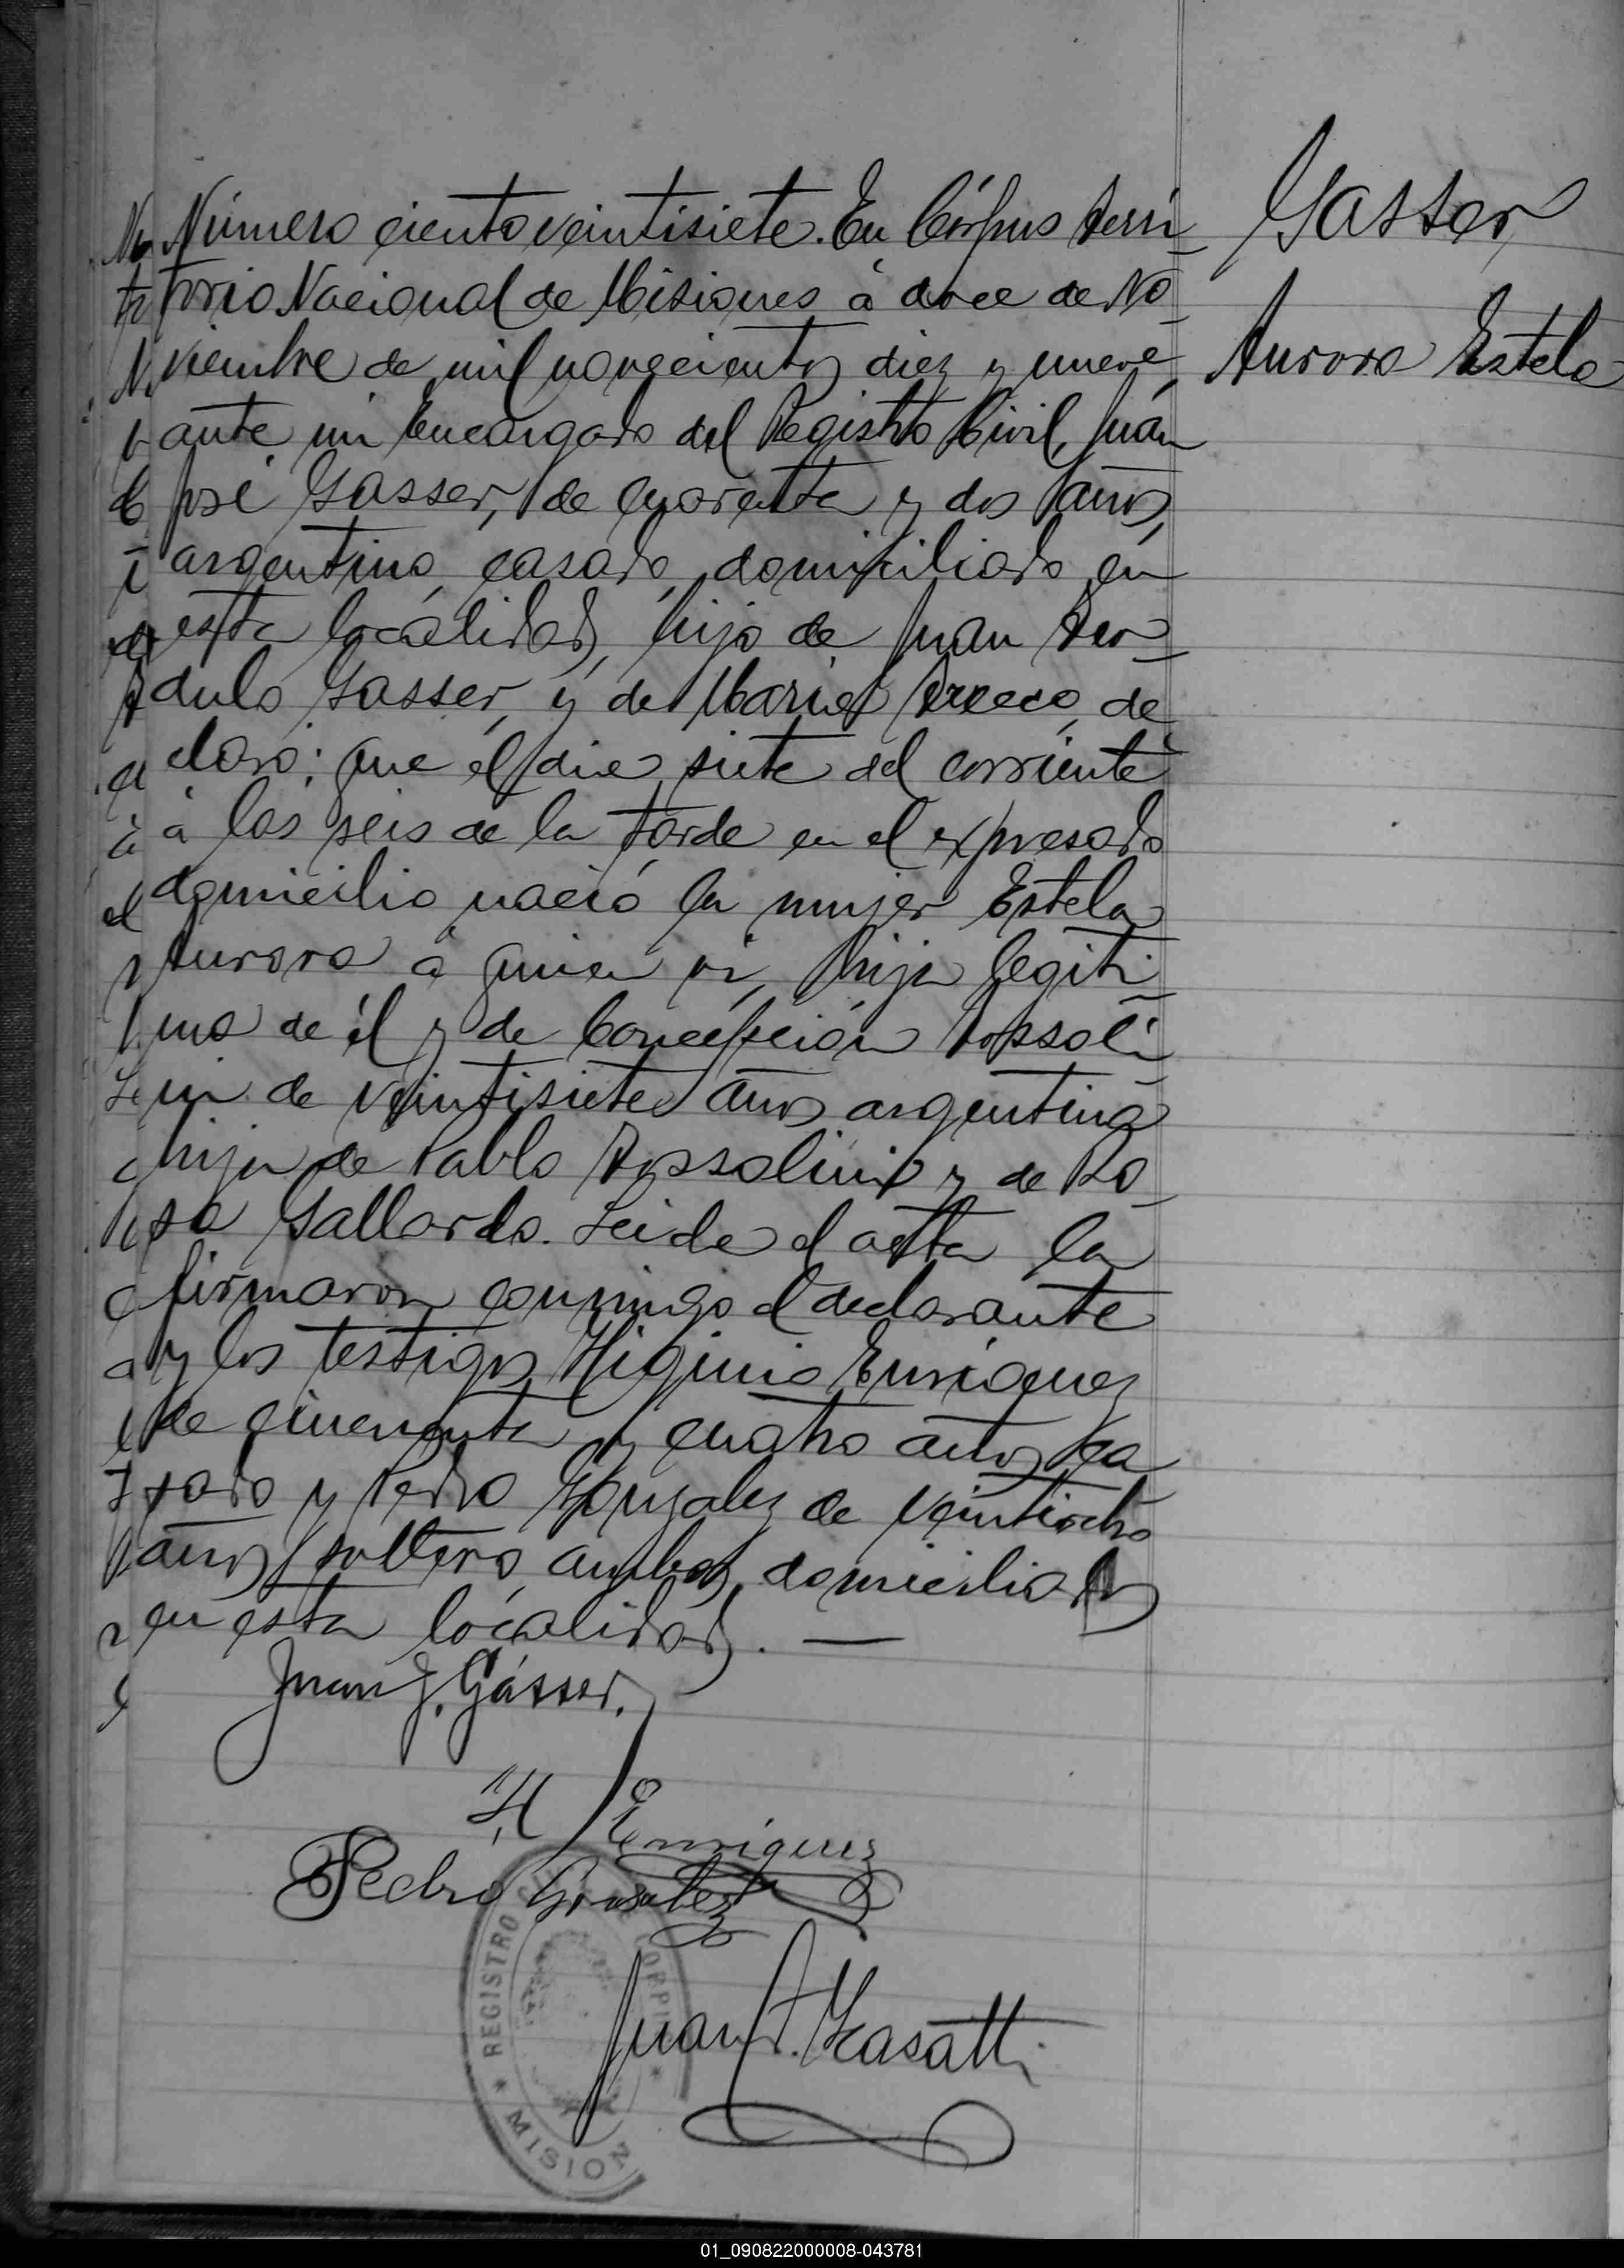 Número ciento veintisiete. En Córpus Terri
torio Nacional de Misiones à doce de No
viembre de mil novecientos diez y nueve,
ante mi Encargado del Registro Civil, Juán
José Gasser, de cuarenta y dos años,
argentino, casado, domiciliado en
esta localidad, hijo de Juan Teo
dulo Gasser, y de Maria de
claró: que el dia siete del corriente
à las seis de la tarde en el expresado
domicilio nació la mujer Estela
Aurora à quien vi, hija legiti
ma de él y de Concepción Rossoli
ni de veintisiete años argentina
hija de Pablo Rossolini y de Ro
sa Gallardo. Leida el acta la
firmaron conmigo el declarante
y los testigos Higinio Enriquez
de cincuenta y cuatro años ca
sado y Pedro Gonzalez de veintiocho
años soltero ambos domiciliados
en esta localidad. —
Juan J. Gásser.
H Enriquez
Pedro Gonzalez
Juan
REGISTRO CIVIL
CORPUS
* MISION
Gasser
Aurora Estela
01_090822000008-043781